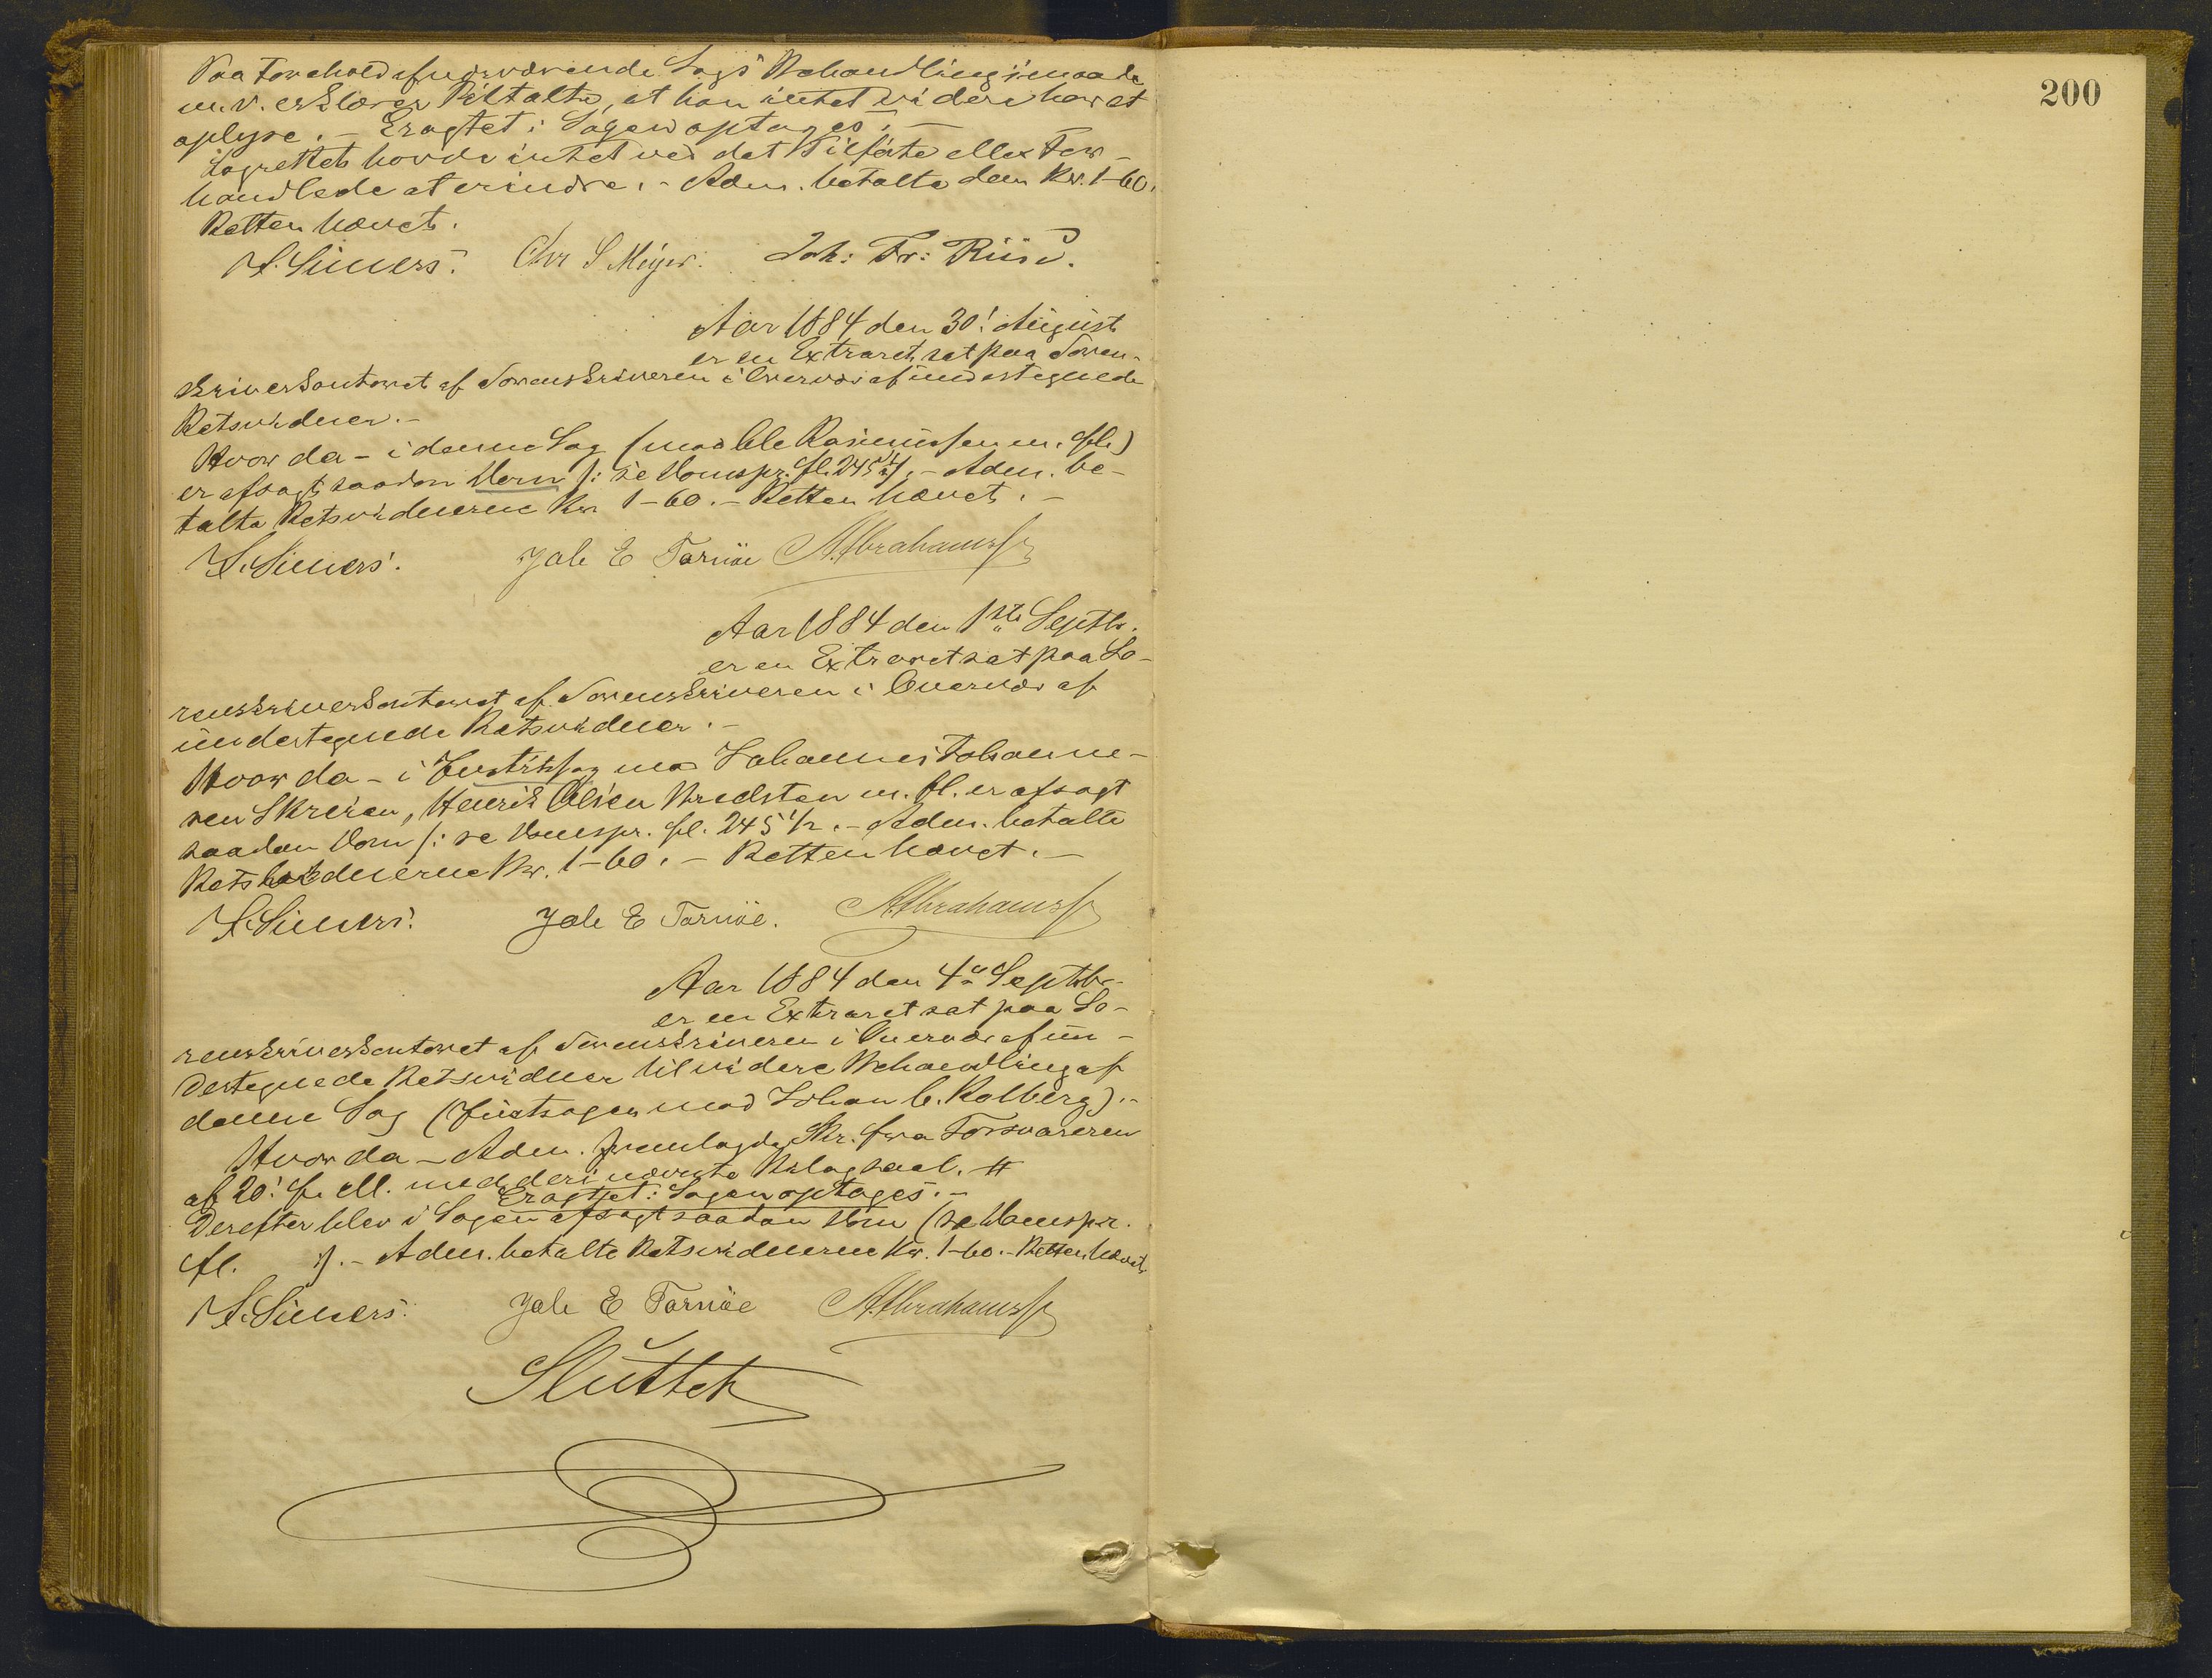 Paa Forehold af nærværende Sags Behandlingsmaade
m.v. erklærer Tiltalte, at han intet videre har at
oplyse. – Eragtet: Sagen optages. –
Lagrettet havde intet ved det Tilførte eller For-
handlede at erindre. – Adm. betalte dem Kr. 1-60.
Retten hævet.
S. Siuers. Chr S Meyer. Joh: Fr: Riis
Aar 1884 den 30! August
er en Extraret sat paa Soren-
skriverkontoret af Sorenskriveren i Overvær af undertegnede
Retsvidner. –
Hvor da – i denne Sag (mod Ole Rasmussen m. fl.)
er afsagt saadan Dom /: se Domspr. fl. 245 /. – Adm. be-
talte Retsvidnerne Kr 1-60. – Retten hævet. –
S. Siuers. E Tornöe A. Abrahams
Aar 1884 den 1ste Septbr.
er en Extraret sat paa So-
renskriverkontoret af Sorenskriveren i Overvær af
undertegnede Retsvidner. –
Hvor da – i Justitssag mod Johannes Johanne-
sen Skreien, Henrik Olsen m. fl. er afsagt
saadan Dom /: se Domspr. fl. 245 1/2. – Adm. betalte
Retsvidnerne Kr. 1-60. – Retten hævet. –
S. Siuers. E Tornöe. A. Abrahams
Aar 1884 den 4de Septbr.
er en Extraret sat paa So-
renskriverkontoret af Sorenskriveren i Overvær af un-
dertegnede Retsvidner til videre Behandling af
denne Sag (Justsagen mod Johan C. Kolberg). –
Hvor da – Adm. fremlagde Skr. fra Forsvareren
af 20! f. M. med deri nævnte Bilag saal. #
Eragtet: Sagen optages. –
Derefter blev i Sagen afsagt saadan Dom (se Domspr.
fl. ). – Adm. betalte Retsvidnerne Kr. 1-60. – Retten hævet.
S. Siuers. E Tornöe A. Abrahams
Sluttet
200